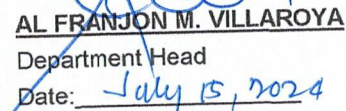 AL FRANJON M. VILLAROYA
Department Head
Date: July 15, 2024